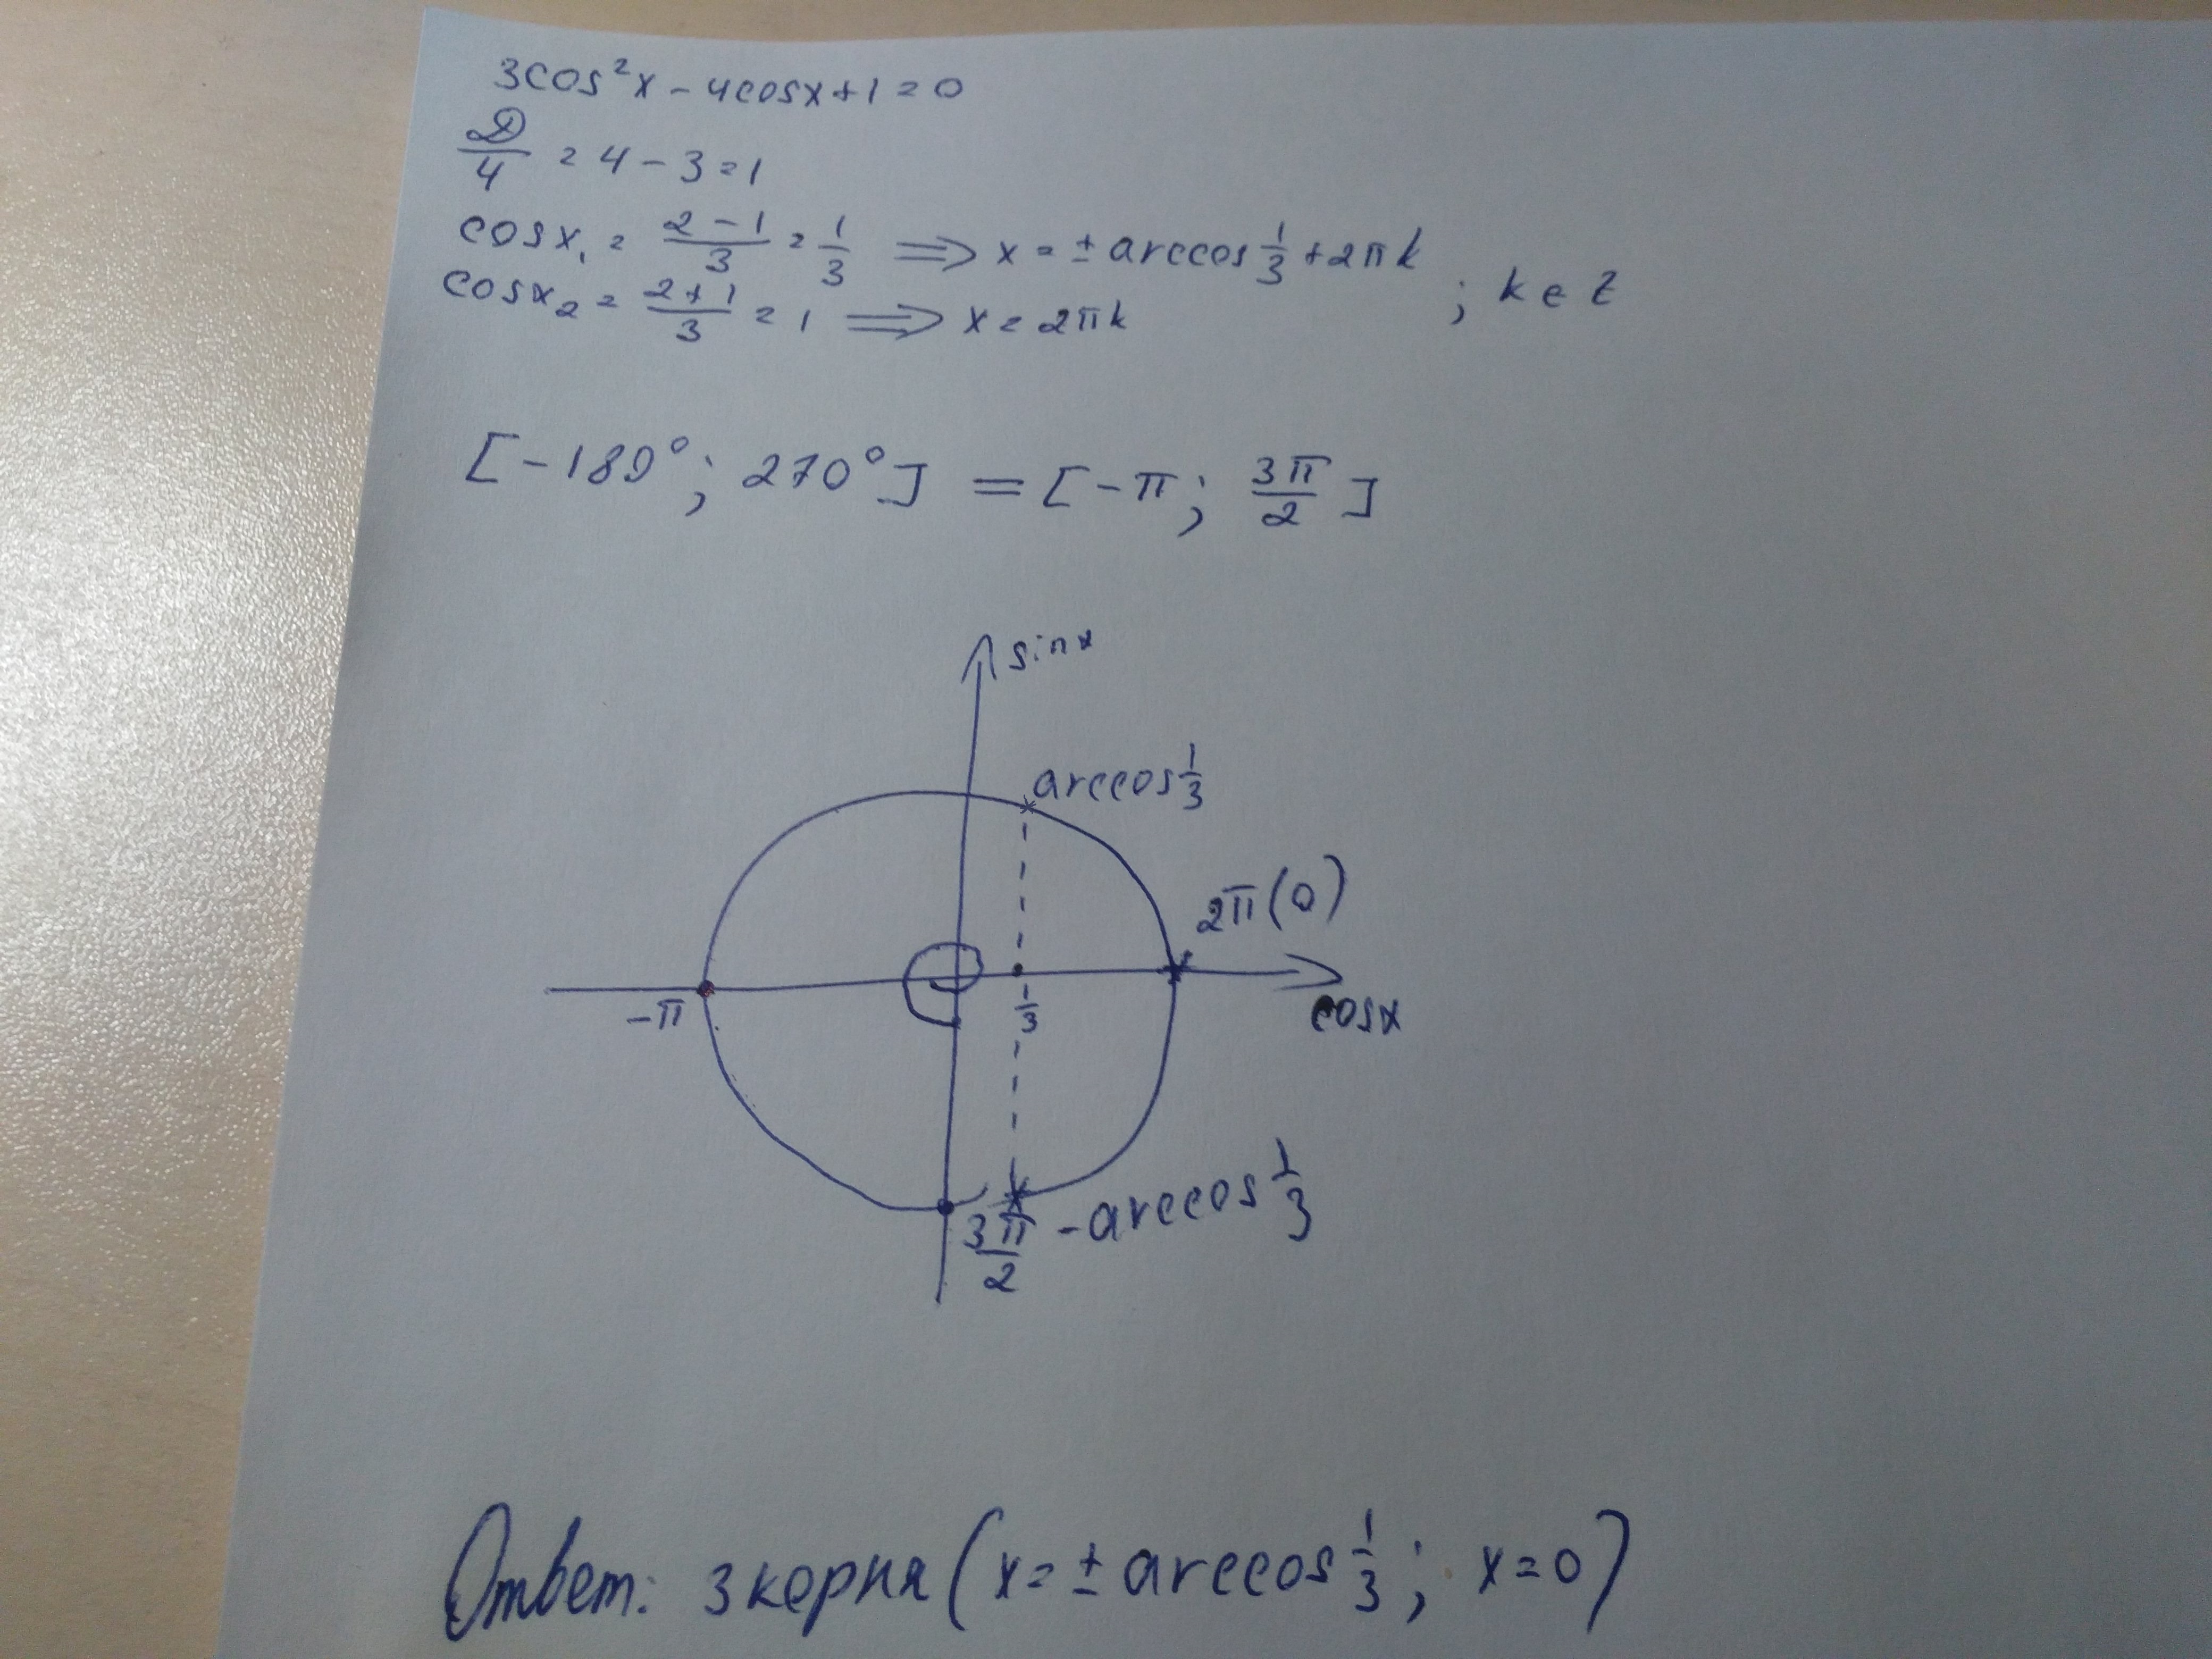 3cos²x - 4cosx + 1 = 0
D/4 = 4 - 3 = 1
cosx₁ = (2 - 1)/3 = 1/3 ⟹ x = ± arccos 1/3 + 2πk
cosx₂ = (2 + 1)/3 = 1 ⟹ x = 2πk ; k ∈ Z
[-180°; 270°] = [-π; 3π/2]
sinx
arccos 1/3
2π(0)
-π
1/3
cosx
3π/2
-arccos 1/3
Ответ: 3 корня (x = ± arccos 1/3; x = 0)